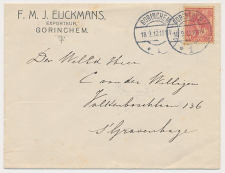 F. M. J. EIJCKMANS,
EXPORTEUR,
GORINCHEM.
GORINCHEM
Den WelEd Heer
C van der Willigen
Valkenboschlaan 136
s'Gravenhage